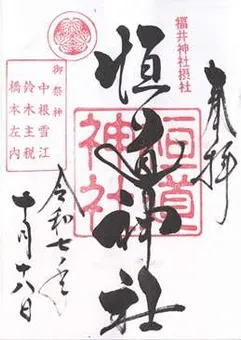 奉拝
福井神社摂社
恒道神社
恒道
神社
御祭神
中根雪江
鈴木主税
橋本左内
令和七年
十月十八日